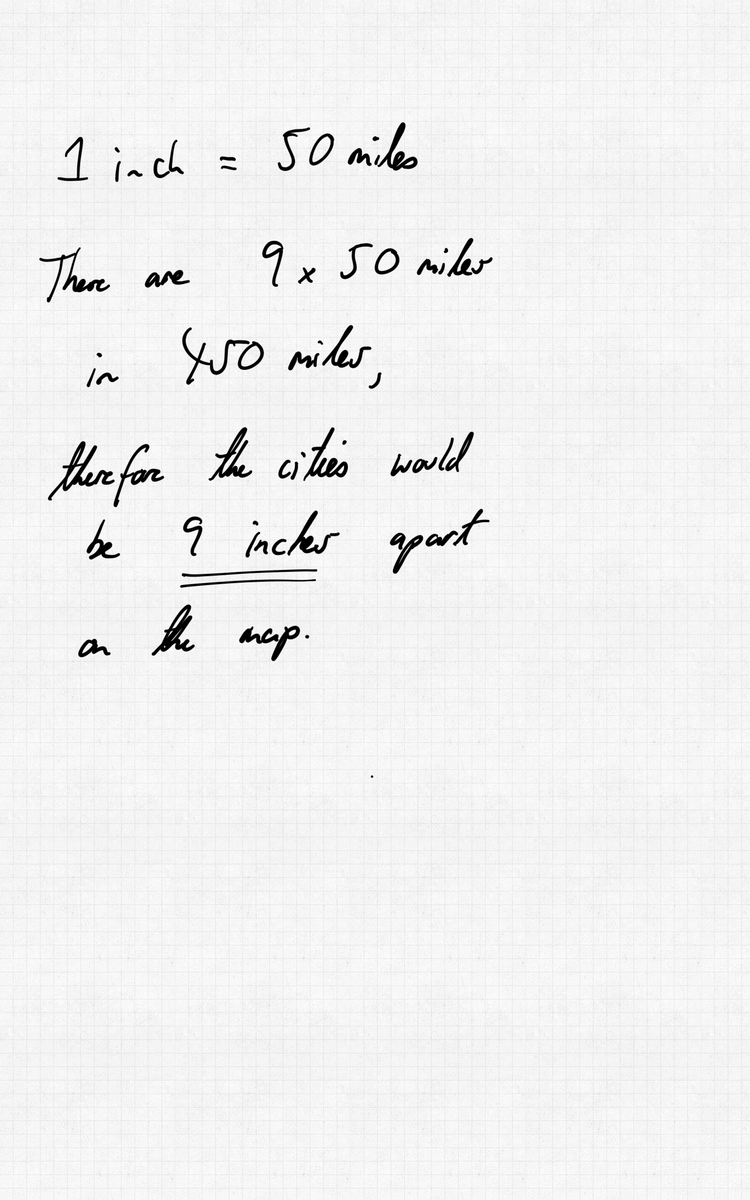 1 inch = 50 miles
There are 9 x 50 miles
in 450 miles,
therefore the cities would
be 9 inches apart
on the map.